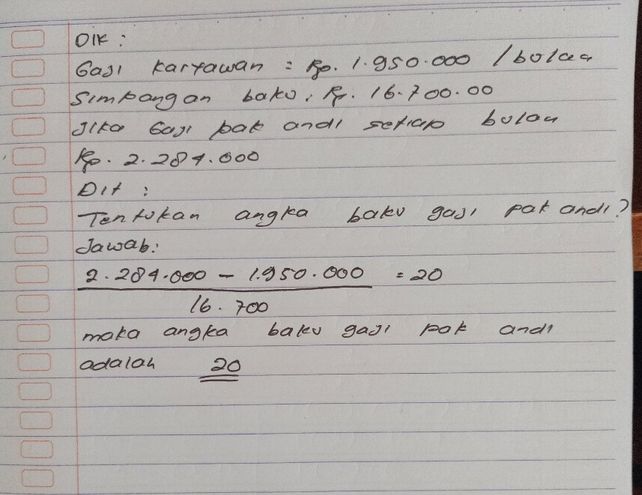 Dik :
Gaji karyawan = Rp. 1.950.000 /bulan
Simpangan baku, Rp. 16.700.00
Jika Gaji pak andi setiap bulan
Rp. 2.284.000
Dit :
Tentukan angka baku gaji pak andi?
Jawab:
2.284.000 - 1.950.000 = 20
16.700
maka angka baku gaji pak andi
adalah 20